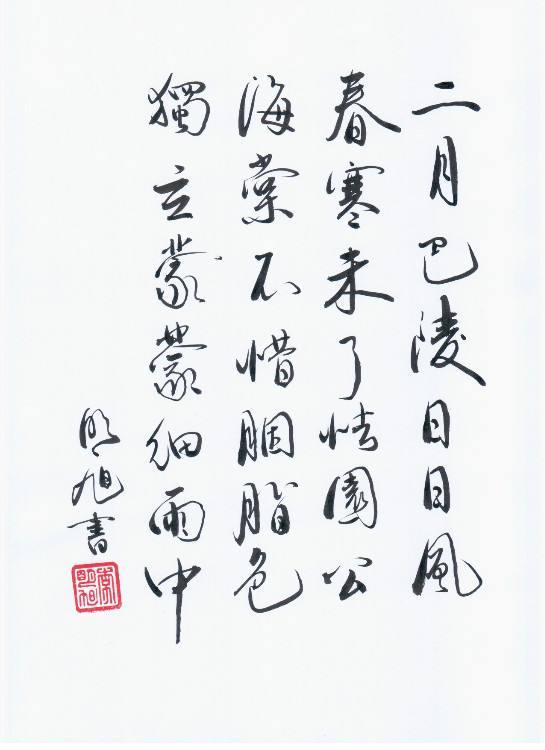 二月巴陵日日風
春寒未了怯園公
海棠不惜胭脂色
獨立蒙蒙細雨中
明旭書